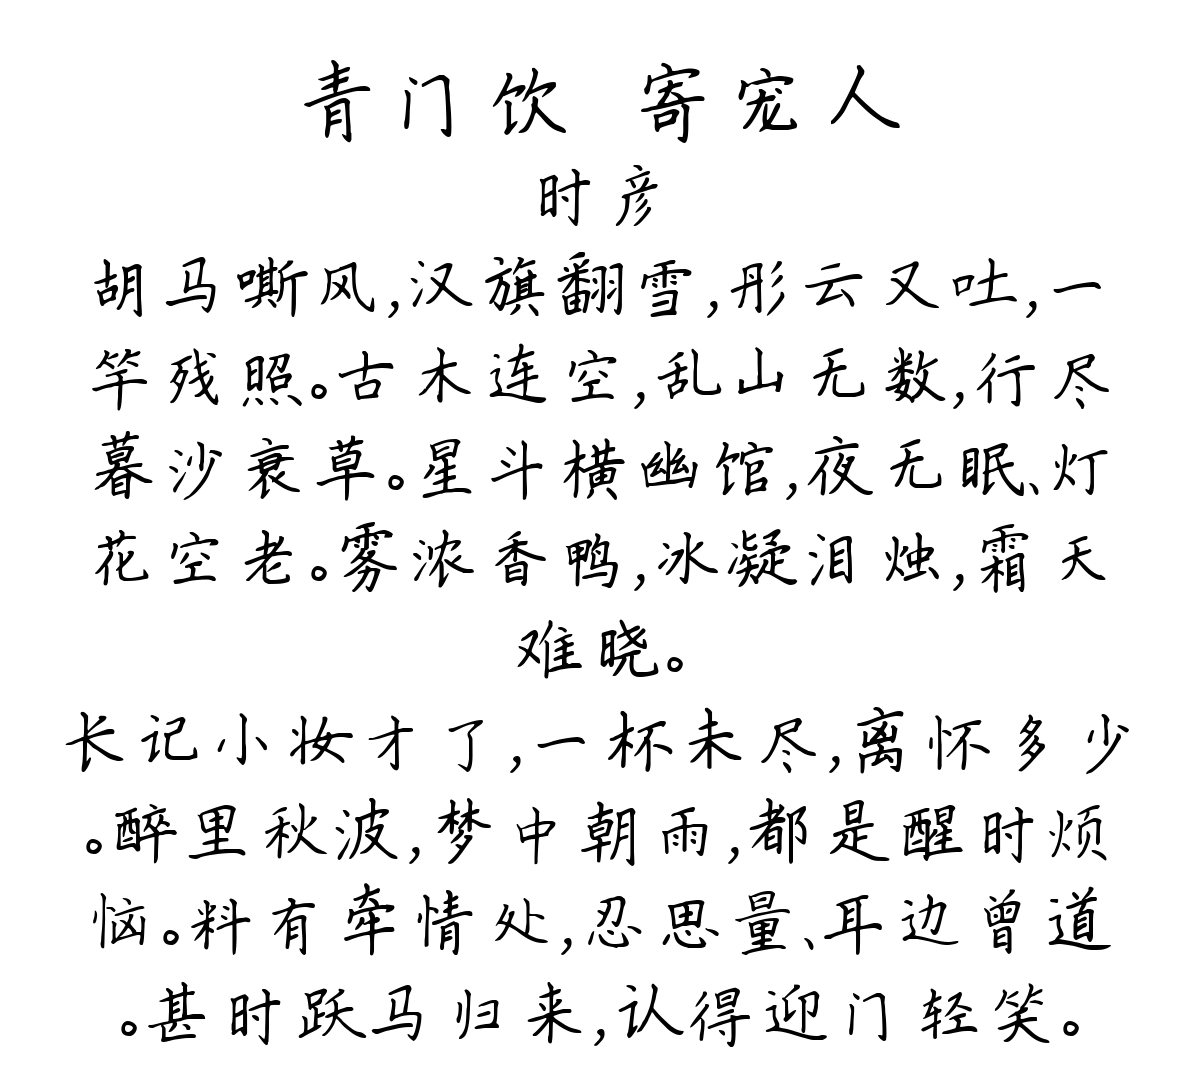 青门饮 寄宠人
时彦
胡马嘶风,汉旗翻雪,彤云又吐,一
竿残照。古木连空,乱山无数,行尽
暮沙衰草。星斗横幽馆,夜无眠、灯
花空老。雾浓香鸭,冰凝泪烛,霜天
难晓。
长记小妆才了,一杯未尽,离怀多少
。醉里秋波,梦中朝雨,都是醒时烦
恼。料有牵情处,忍思量、耳边曾道
。甚时跃马归来,认得迎门轻笑。